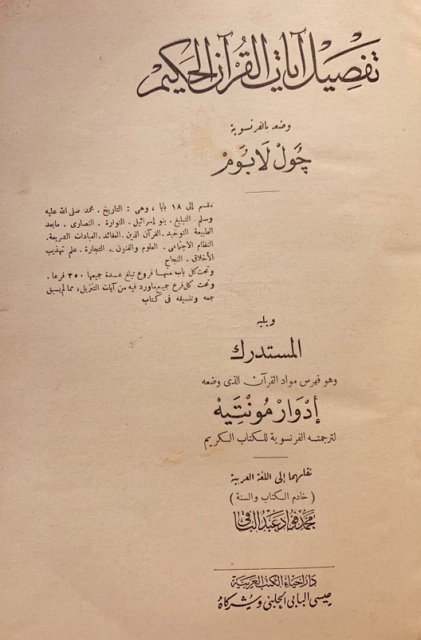 تفصيل آيات القرآن الحكيم
وضعه بالفرنسوية
چول لابوم
مقسم إلى ١٨ بابا ، وهى : التاريخ . محمد صلى الله عليه
وسلم . التبليغ . بنو إسرائيل . التوراة . النصارى . مابعد
الطبيعة . التوحيد . القرآن . الدين . العقائد . العبادات . الشريعة .
النظام الاجتماعى . العلوم والفنون . التجارة . علم تهذيب
الأخلاق . النجاح
وتحت كل باب منها فروع تبلغ عدة جميعها ٣٥٠ فرعا .
وتحت كل فرع جميع ماورد فيه من آيات التنزيل ، مما لم يسبق
جمعه وتنسيقه فى كتاب
ويليه
المستدرك
وهو فهرس مواد القرآن الذى وضعه
إدوار مونتيه
لترجمته الفرنسوية للكتاب الكريم
نقلهما إلى اللغة العربية
( خادم الكتاب والسنة )
محمد فؤاد عبد الباقى
دار إحياء الكتب العربية
عيسى البابى الحلبى وشركاه